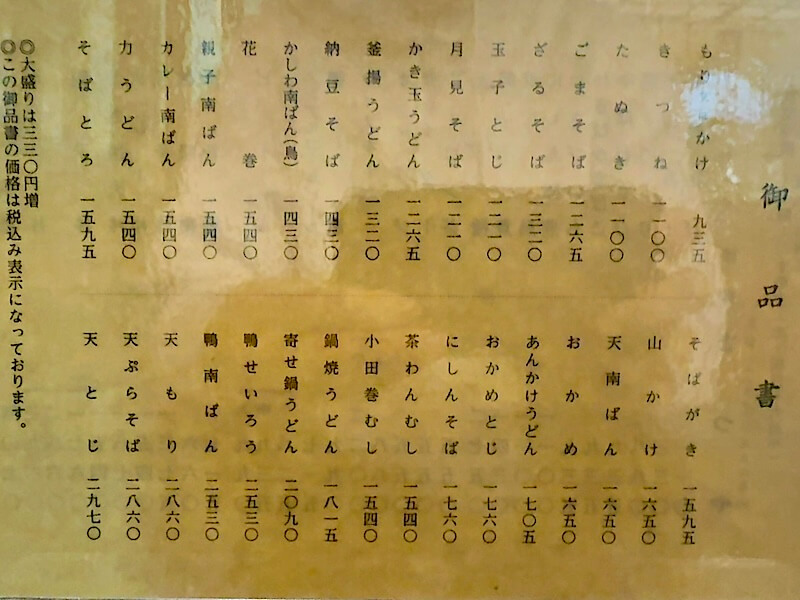 御品書
もりかけ 九三五
きつね 一一〇〇
たぬき 一一〇〇
ごまそば 一二六五
ざるそば 一三二〇
玉子とじ 一二一〇
月見そば 一二一〇
かき玉うどん 一二六五
釜揚うどん 一三二〇
納豆そば 一四三〇
かしわ南ばん(鳥) 一四三〇
花巻 一五四〇
親子南ばん 一五四〇
カレー南ばん 一五四〇
力うどん 一五四〇
そばとろ 一五九五
そばがき 一五九五
山かけ 一六五〇
天南ばん 一六五〇
おかめ 一六五〇
あんかけうどん 一七〇五
おかめとじ 一七六〇
にしんそば 一七六〇
茶わんむし 一五四〇
小田巻むし 一五四〇
鍋焼うどん 一八一五
寄せ鍋うどん 二〇九〇
鴨せいろう 二五三〇
鴨南ばん 二五三〇
天もり 二八六〇
天ぷらそば 二八六〇
天とじ 二九七〇
◎大盛りは三三〇円増
◎この御品書の価格は税込み表示になっております。